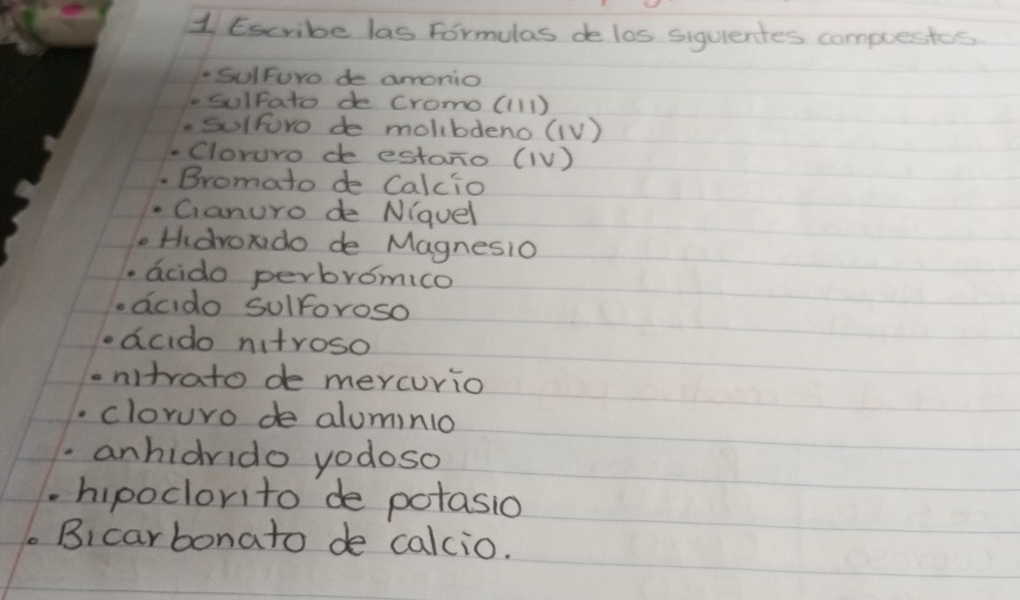 1 Escribe las Fórmulas de los siguientes compuestos.
• Sulfuro de amonio
• Sulfato de Cromo (III)
• Sulfuro de molibdeno (IV)
• Cloruro de estaño (IV)
• Bromato de Calcio
• Cianuro de Níquel
• Hidroxido de Magnesio
• ácido perbrómico
• ácido sulforoso
• ácido nitroso
• nitrato de mercurio
• cloruro de aluminio
• anhidrido yodoso
• hipoclorito de potasio
• Bicarbonato de calcio.